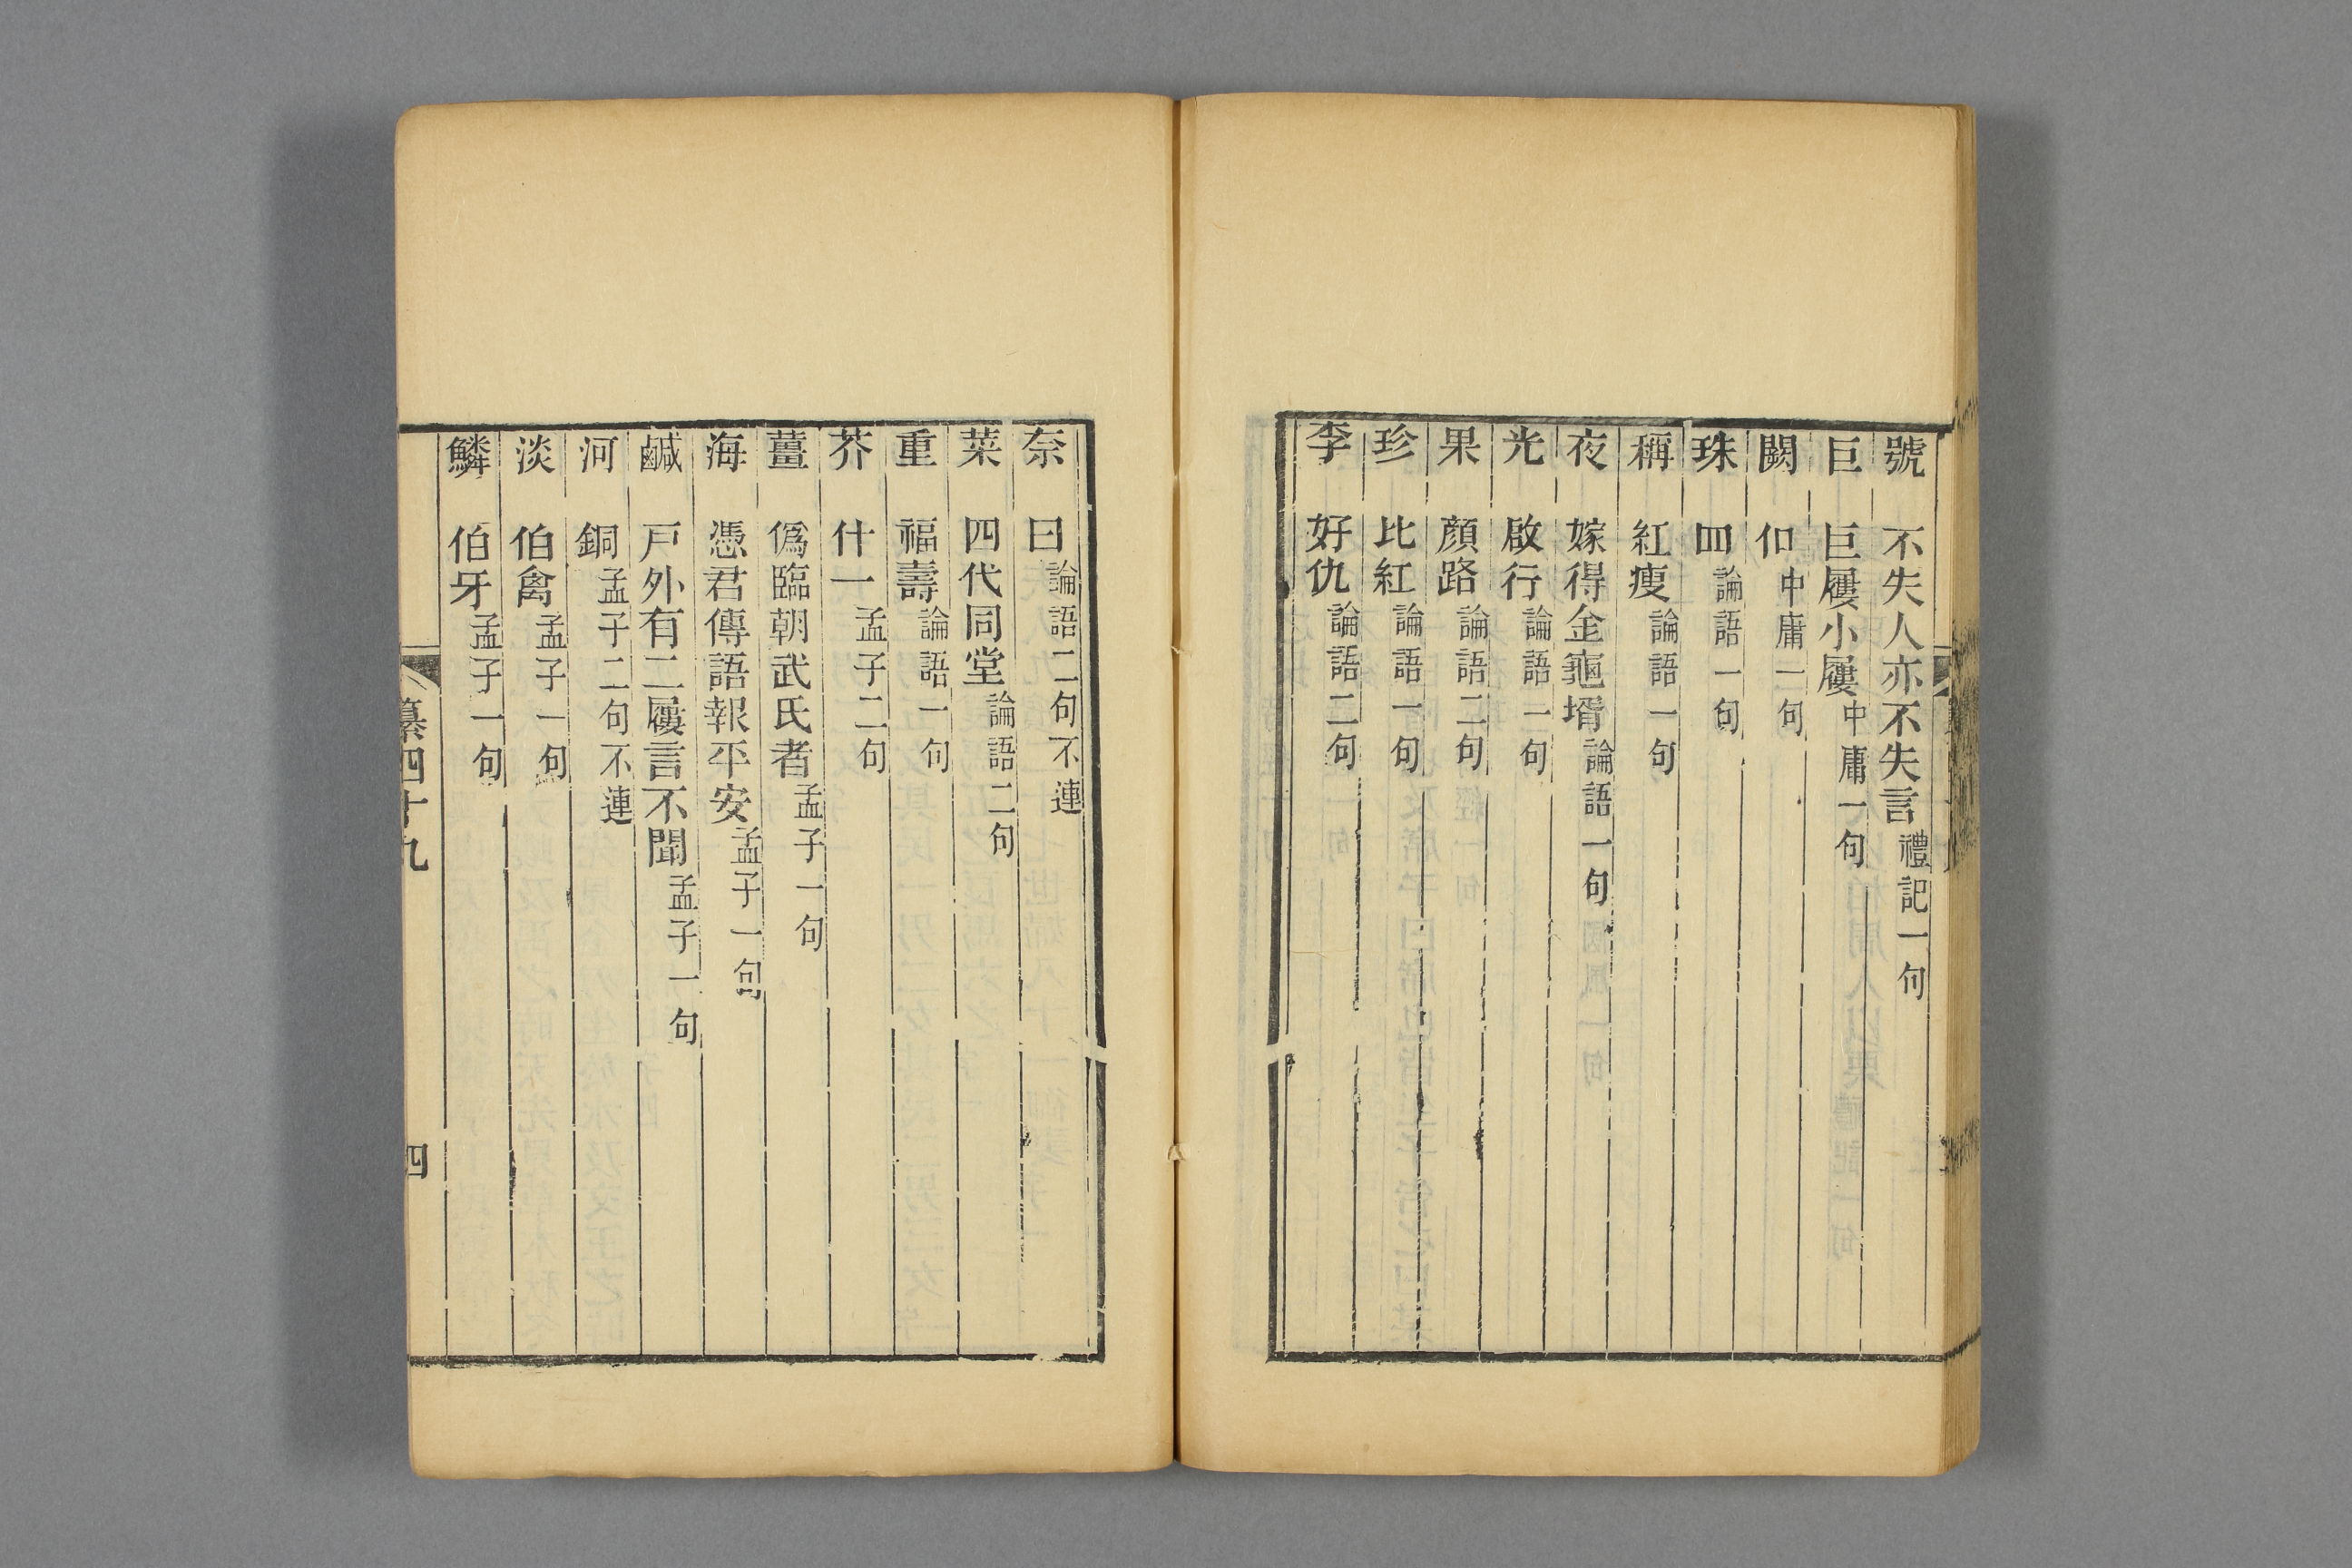 號 不失人亦不失言 禮記一句
巨 巨屨小屨 中庸一句
闕 仰 中庸一句
珠 四 論語一句
稱 紅瘦 論語一句
夜 嫁得金龜壻 論語一句
光 啟行 論語一句
果 顏路 論語二句
珍 比紅 論語一句
李 好仇 論語二句
柰 曰 論語二句不連
菜 四代同堂 論語二句
重 福壽 論語一句
芥 什一 孟子二句
薑 僞臨朝武氏者 孟子一句
海 憑君傳語報平安 孟子一句
鹹 戸外有二屨言不聞 孟子一句
河 銅 孟子二句不連
淡 伯禽 孟子一句
鱗 伯牙 孟子一句
纂四十九 四